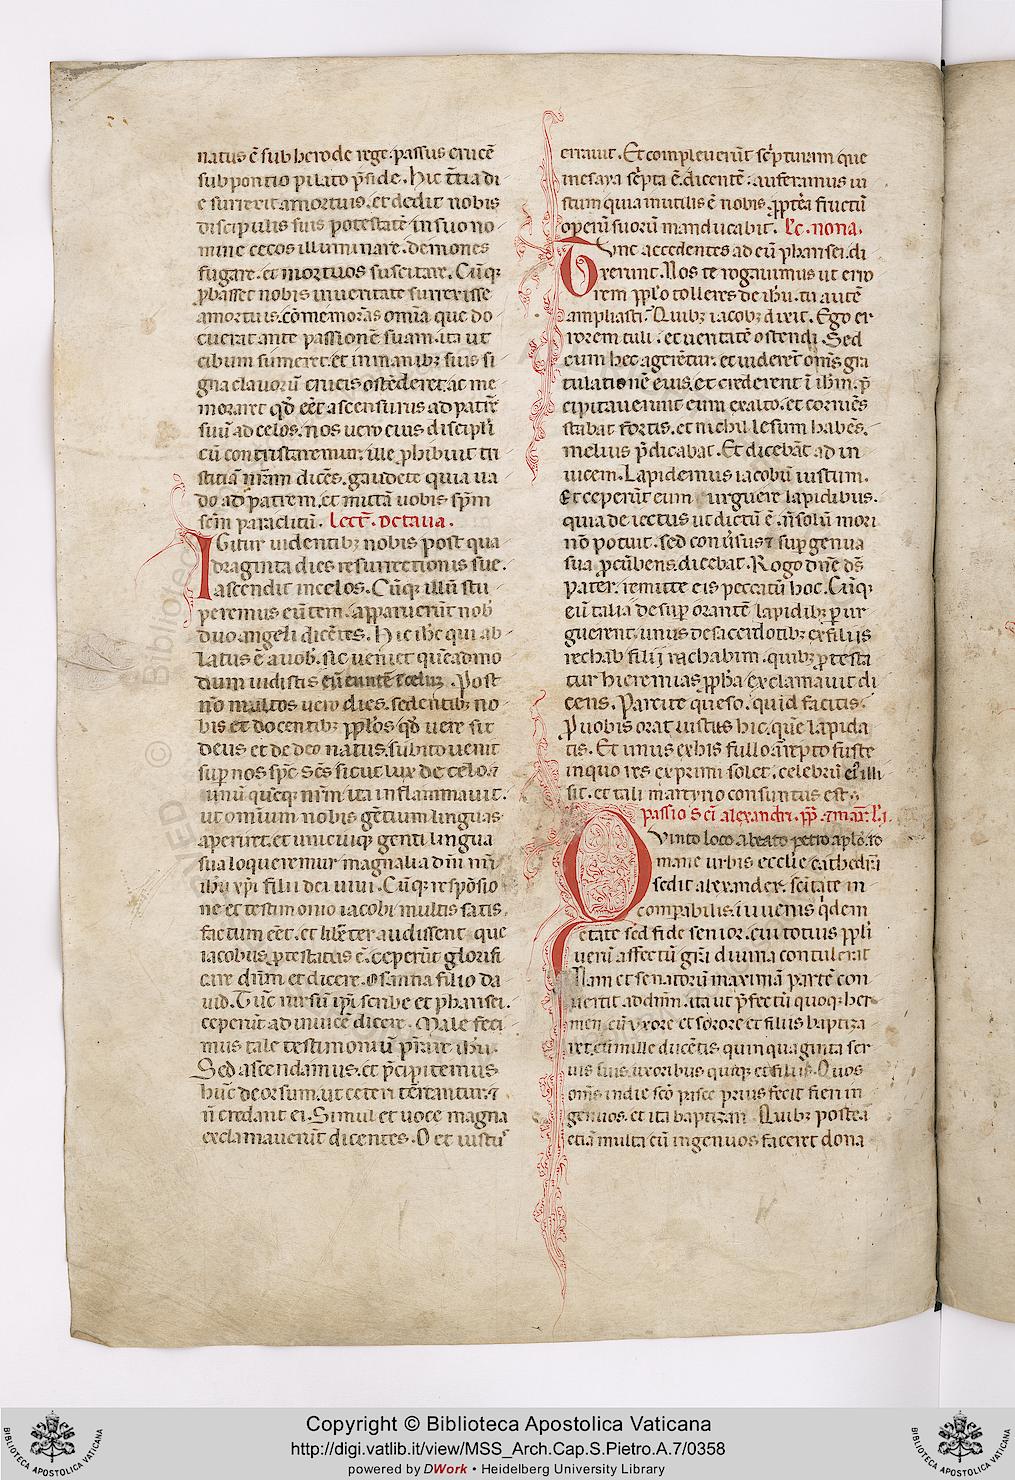 natus ē sub herode rege. passus crucē
sub pontio pilato p̄side. Hic t̄tia di
e surrexit a mortuis. et dedit nobis
discipulis suis potestatē in suo no
mine cecos illuminare. demones
fugare. et mortuos suscitare. Cūqꝫ
ꝓbasset nobis in ueritate surrexisse
a mortuis. cōmemorās omnia que do
cuerat ante passionē suam. ita ut
cibum sumeret. et in manibꝫ suis si
gna clauorū crucis ostēderet. ac me
moraret qđ eēt ascensurus ad patrē
suū ad celos. nos uero eius discipli
cū contristaremur. ille ꝓhibuit tri
stitiā nrām dicēs. gaudete quia ua
do ad patrem. et mittā uobis sp̄m
sc̄m paraclitū. Lect̄. octaua.
IGitur uidentibꝫ nobis post qua
draginta dies resurrectionis sue.
ascendit in celos. Cūqꝫ illū stu
peremus eūtem. apparuerūt nob̄
duo angeli dicētes. Hic ihc̄ qui ab
latus ē a uob̄. sic ueniet quēadmo
dum uidistis eū euntē ī celuꝫ. Post
nō multos uero dies. sedentibꝫ no
bis et docentibꝫ ppl̄os qđ uere sit
deus et de deo natus. subito uenit
suꝑ nos sp̄c sc̄s sicut lux de celo. ⁊
unū quēqꝫ nr̄m ita inflammauit.
ut omnium nobis gētium linguas
aperiret. et unicuiqꝫ genti lingua
sua loqueremur magnalia dn̄i nr̄i
ihu xp̄i filii dei uiui. Cūqꝫ respōsio
ne et testimonio iacobi multis satis
factum eēt. et libēter audissent que
iacobus ꝓtestatus ē. ceperūt glorifi
care dn̄m et dicere. Osanna filio da
uid. Tūc rursū ip̄i scribe et pharisei.
ceperūt ad inuicē dicere. Male feci
mus tale testimoniū p̄stare ihu.
Sed ascendamus. et p̄cipitemus
hūc deorsum. ut ceteri tērreantur. ⁊
n̄ credant ei. Simul et uoce magna
exclamauerūt dicentes. O et iustus
errauit. Et compleuerūt sc̄pturam que
in esaya sc̄pta ē. dicentē. auferamus iu
stum quia inutilis ē nobis. ꝓpt̄ea fructū
operū suorū manducabit. Lc̄. nona.
Tunc accedentes ad eū pharisei. di
xerunt. Nos te rogauimus ut erro
rem ppl̄o tolleres de ihu. tu autē
ampliasti. Quibꝫ iacobꝫ dixit. Ego er
rorem tuli. et ueritatē ostendi. Sed
cum hec agerētur. et uiderēt om̄s gra
tulationē eius. et crederent ī ihm̄. p̄
cipitauerunt eum ex alto. et corruēs
stabat fortis. et nichil lesum habēs.
melius p̄dicabat. Et dicebāt ad in
uicem. Lapidemus iacobū iustum.
Et ceperūt eum urguere lapidibus.
quia deiectus ut dictū ē. n̄ solū mori
nō potuit. sed conu̓sus ⁊ suꝑ genua
sua ꝓcūbens. dicebat. Rogo dn̄e ds̄
pater. remitte eis peccatū hoc. Cūqꝫ
eū talia desuꝑ orantē lapidibꝫ ꝑur
guerent. unus de sacerdotibꝫ ex filiis
rechab filii rachabim. quibꝫ ꝓtesta
tur hieremias ꝓph̄a exclamauit di
cens. Parcite queso. quid facitis.
Pro uobis orat iustus hic. quē lapida
tis. Et unus ex his fullo arrepto fuste
in quo res exprimi solet. celebrū ei̓ illi
sit. et tali martyrio consumtus est.
Passio sc̄i alexandri. pp̄. ⁊ mar̄. l̄. i.
Quinto loco a beato petro apl̄o. ro
mane urbis ecclīe cathedrā
sedit alexander. sc̄itate in
comparabilis. iuuenis q̓dem
etate sed fide senior. cui totius ppl̄i
uerū affectū gr̄a diuina contulerat
Nam et senatorū maximā partē con
uertit ad dn̄m. ita ut p̄fectū quoqꝫ her
men cū uxore et sorore et filiis baptiza
ret. cū mille ducētis quinquaginta ser
uis suis. uxoribus quoqꝫ et filiis. Quos
om̄s in die sc̄o pasce prius fecit fieri in
genuos. et ita baptizari. Quibꝫ postea
etiā multa cū ingenuos faceret dona
Copyright © Biblioteca Apostolica Vaticana
http://digi.vatlib.it/view/MSS_Arch.Cap.S.Pietro.A.7/0358
powered by DWork • Heidelberg University Library